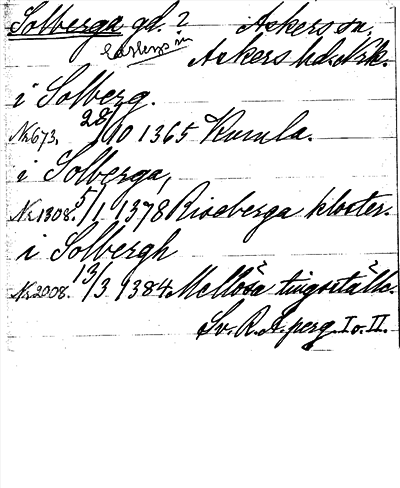 Solberga gd. ? Askers sn,
Askers hd. Nrk.
i Solberg.
Nr 673, 28/10 1365 Kumla.
i Solberga,
Nr 1308. 5/1 1378 Riseberga kloster.
i Solbergh
Nr 2008. 13/3 1384 Mellösa tingställe.
Sv. R. A. perg. I o. II.